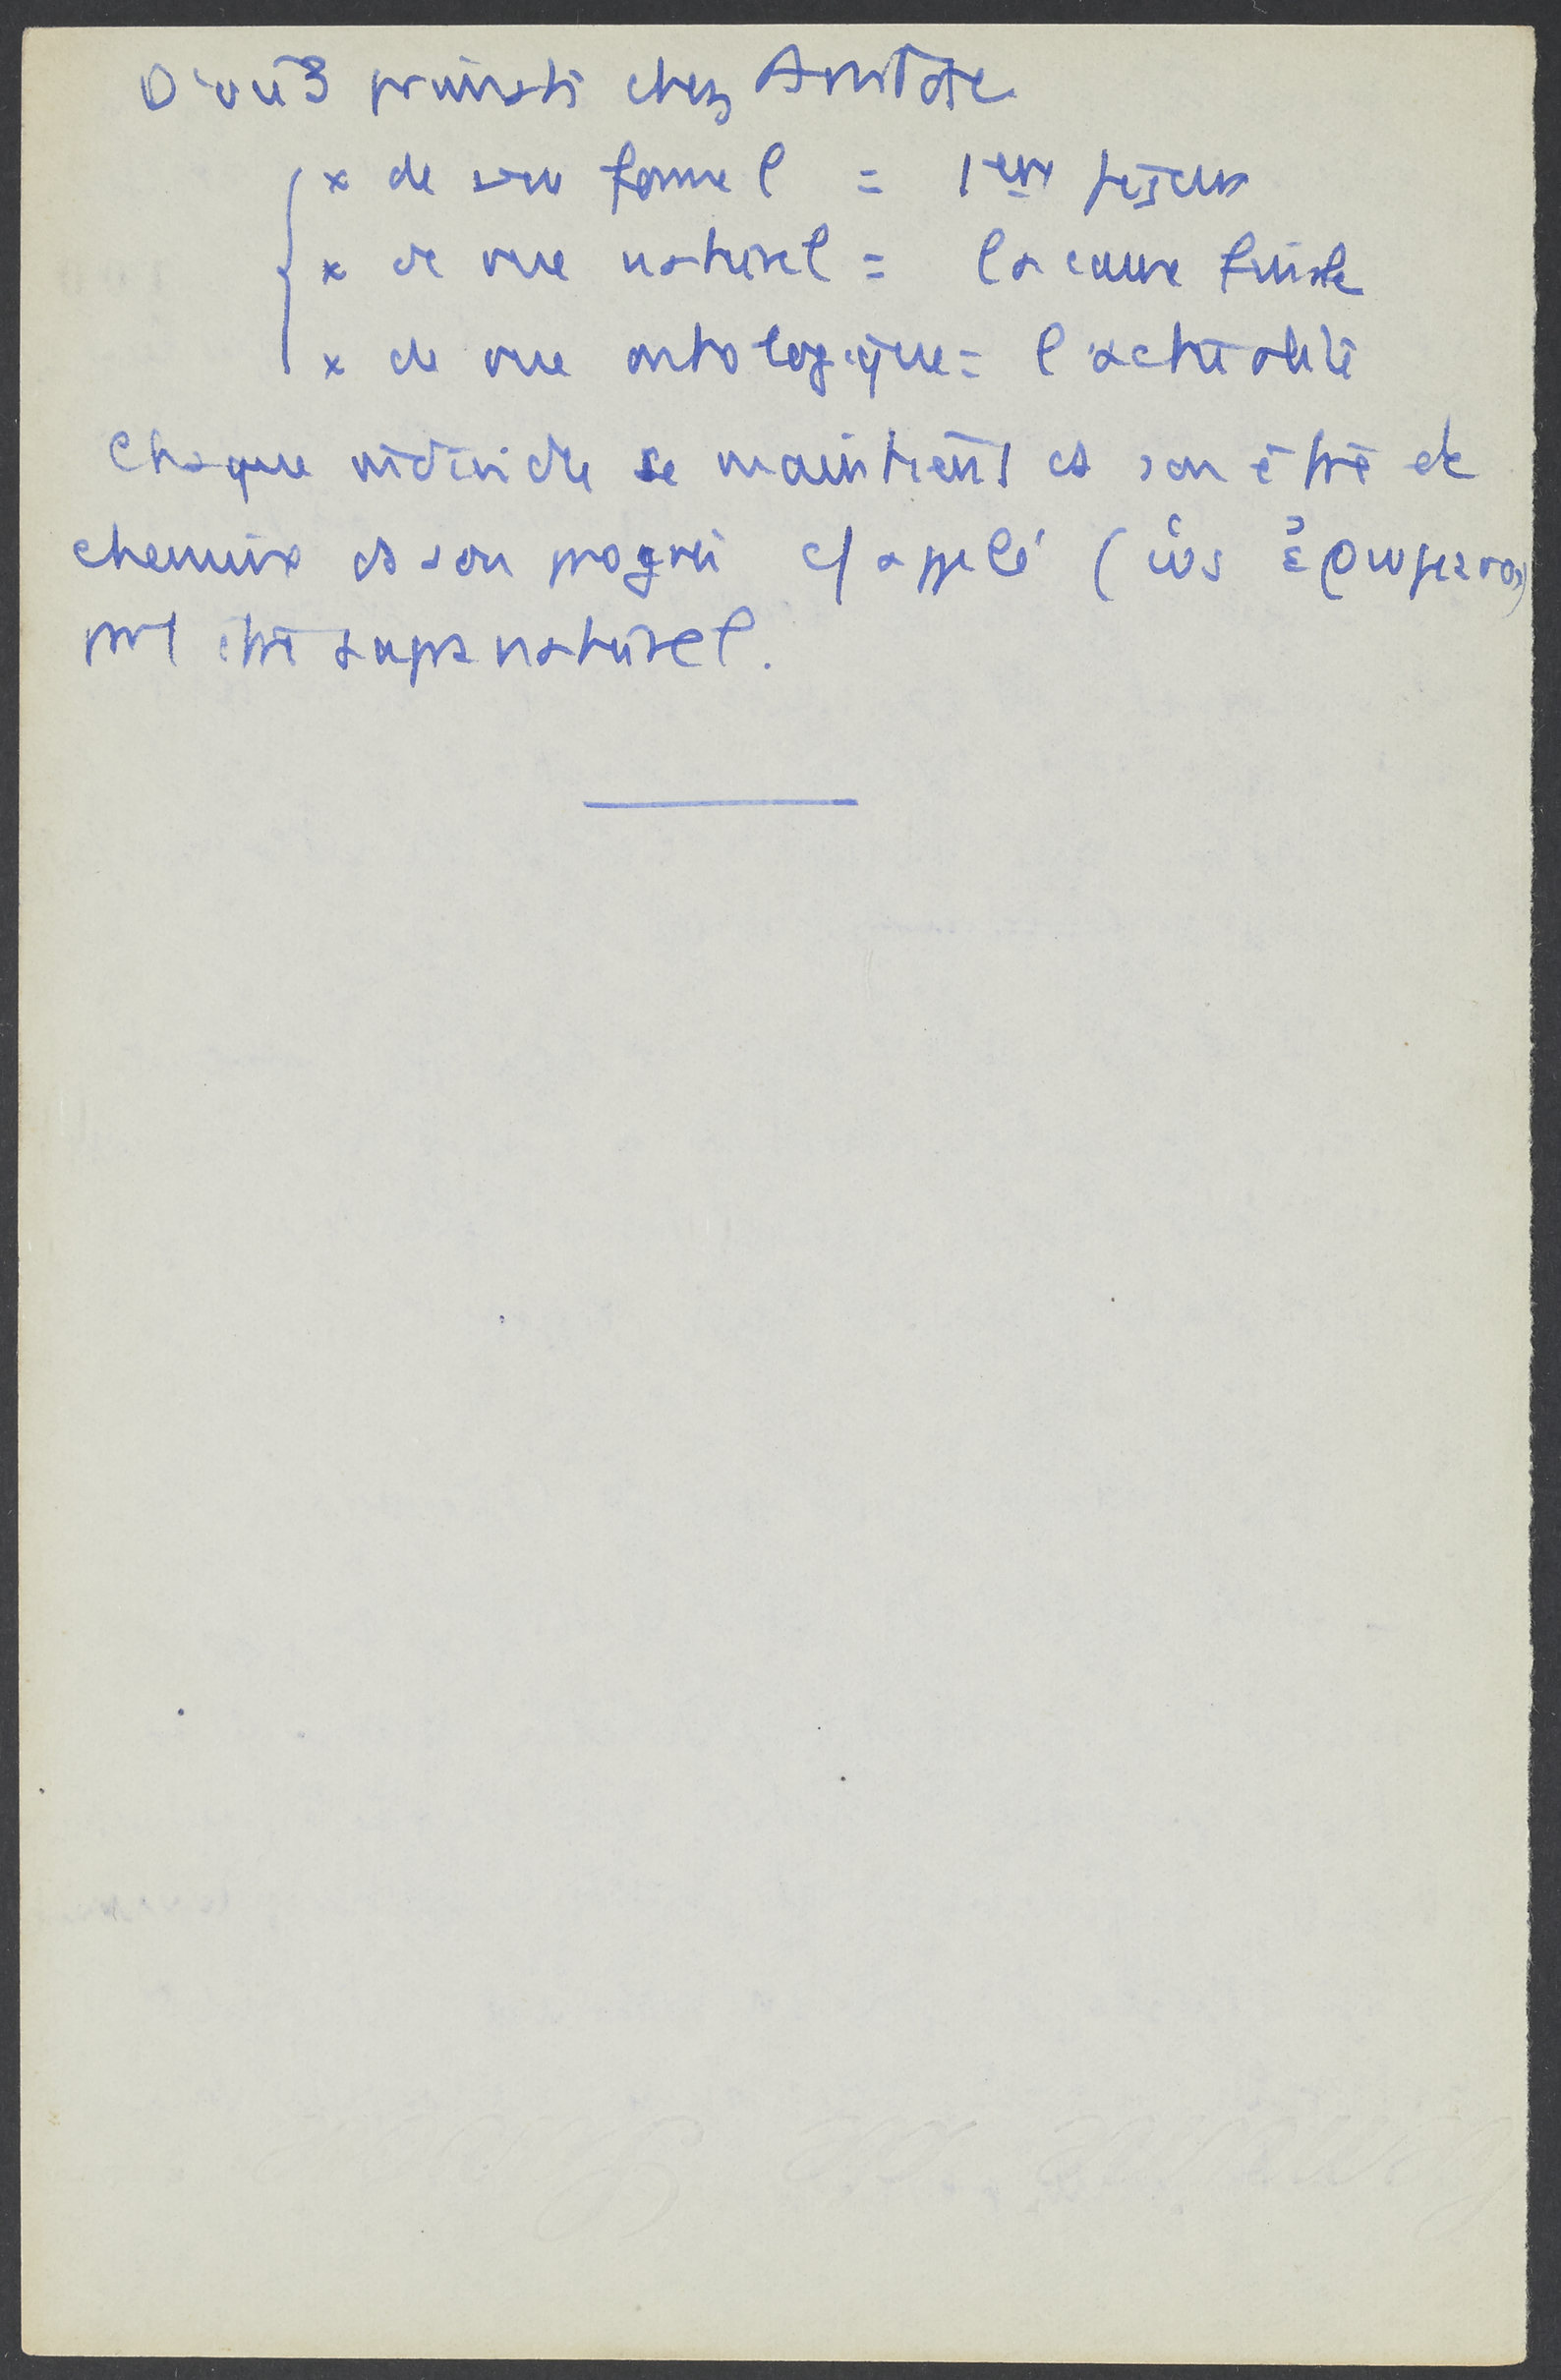 D'où 3 primats chez Aristote
x de vue formel = 1er moteur
x de vue naturel = la cause finale
x de vue ontologique = l'actualité
Chaque individu se maintient ds son être et
chemine ds son progrès c/ appelé (ὡς ἐρώμενον)
par 1 être supra naturel.